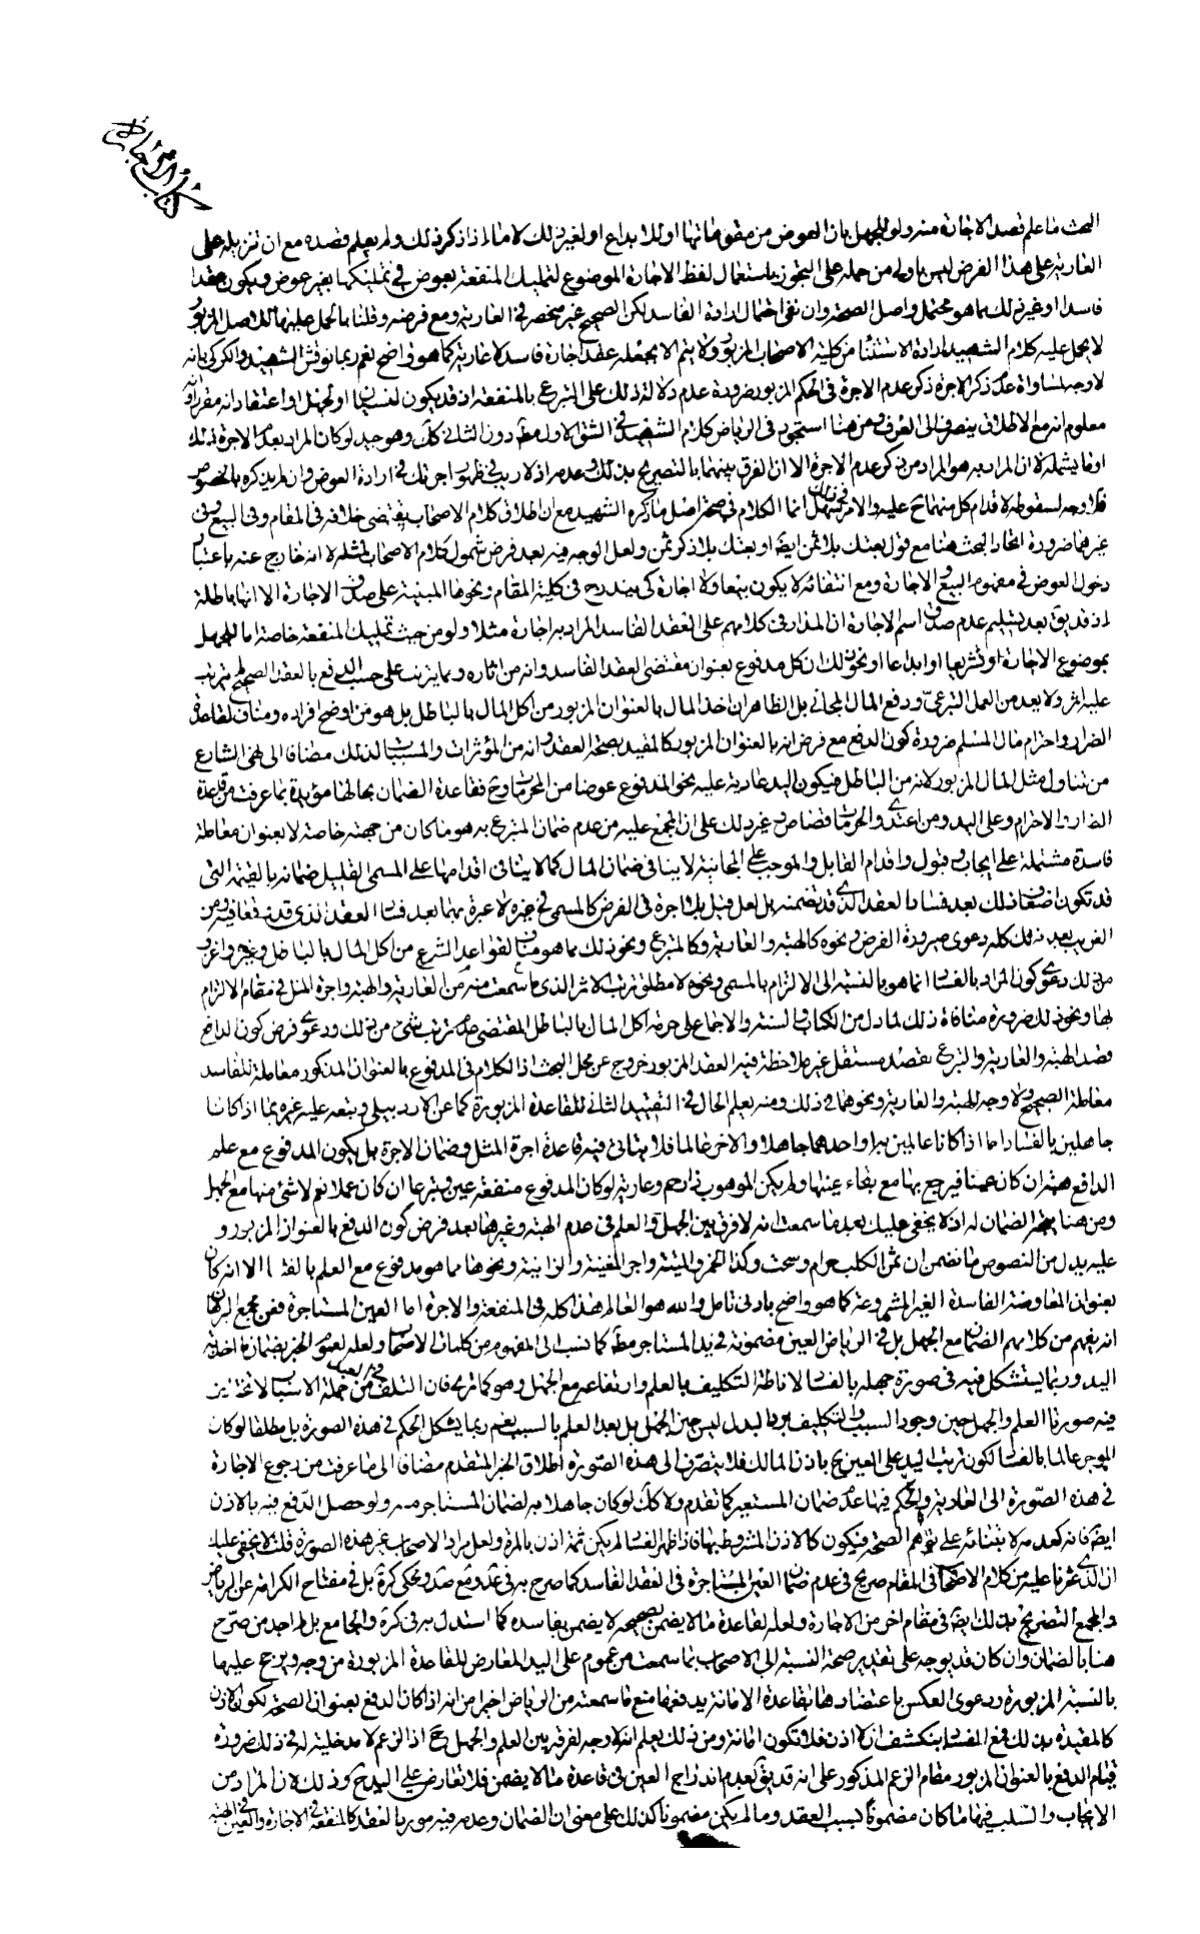 كتاب الاجارة
البحث ما علم قصد الاجارة منه ولو للجهل بان العوض من مقوماتها او للابداع او لغير ذلك لا ما اذا ذكر ذلك ولم يعلم قصده مع ان تنزيله على
العارية على هذا الفرض ليس باولى من حمله على التجوز باستعمال لفظ الاجارة الموضوع لتمليك المنفعة بعوض في تمليكها بغير عوض ويكون عقدا
فاسدا او غير ذلك مما هو محتمل واصل الصحة وان نفى احتمال ارادة الفاسد لكن الصحيح غير منحصر في العارية ومع فرضه وقلنا بالحمل عليها لذلك اصل المزبور
لا يحمل عليه كلام الشهيد لارادة الاستثناء من كلية الاصحاب المزبور ولا يتم الا بجعله عقد اجارة فاسد لا عارية كما هو واضح نعم ربما نوقش الشهيد والكركي بانه
لا وجه لمساواة عدم ذكر الاجرة ذكر عدم الاجرة في الحكم المزبور ضرورة عدم دلالة ذلك على التبرع بالمنفعة اذ قد يكون لنسيان او لجهل او اعتقاد انه مقرر او
معلوم انه مع الاطلاق ينصرف الى العرف ومن هنا استجود في الرياض كلام الشهيد في الشق الاول مط دون الثاني كك وهو جيد لو كان المراد بعدم الاجرة ذلك
او ما يشمله لا ان المراد به هو المراد من ذكر عدم الاجرة الا ان الفرق بينهما بالتصريح بذلك وعدمه اذ لا ريب في ظهور اجرتك في ارادة العوض وان لم يذكره بالخصوص
فلا وجه لسقوطه لاقدام كل منهما ح عليه والامر في ذلك سهل انما الكلام في صحة اصل ما ذكره الشهيد مع ان اطلاق كلام الاصحاب يقتضى خلافه في المقام وفي البيع وفي
غيرهما ضرورة اتحاد البحث هنا مع قول بعتك بلا ثمن ايضا او بعتك بلا ذكر ثمن ولعل الوجه فيه بعد فرض شمول كلام الاصحاب لمثله لا انه خارج عنه باعتبار
دخول العوض في مفهوم البيع والاجارة ومع انتفائه لا يكون بيعا ولا اجارة كي يندرج في كلية المقام ونحوها المبنية على صدق الاجارة الا انها باطلة
اذ قد يق بعد تسليم عدم صدق اسم الاجارة ان المدار في كلامهم على العقد الفاسد المراد به اجارة مثلا ولو من حيث تمليك المنفعة خاصة اما للجهل
بموضوع الاجارة او تشريعا او ابداعا او نحو ذلك ان كل مدفوع بعنوان مقتضى العقد الفاسد وانه من اثاره ومما يترتب على حسب الدفع بالعقد الصحيح لم يترتب
عليه اثر ولا يعد من العمل التبرعي ودفع المال المجاني بل الظاهر ان اخذ المال بالعنوان المزبور من اكل المال بالباطل بل هو من اوضح افراده ومناف لقاعدة
الضرار واحترام مال المسلم ضرورة كون الدفع مع فرض انه بالعنوان المزبور كالمقيد بصحة العقد وانه من المؤثرات والمسببات لذلك مضافا الى نهى الشارع
من تناول مثل المال المزبور لانه من الباطل فيكون اليد عارية عليه نحو المدفوع عوضا من المحرمات وح فقاعدة الضمان بحالها مؤيدة بما عرفت من قاعدة
الضرار والاحترام وعلى اليد ومن اعتدى والحرمات قصاص وغير ذلك على ان المجمع عليه من عدم ضمان المتبرع به هو ما كان من جهته خاصة لا بعنوان معاملة
فاسدة مشتملة على ايجاب وقبول واقدام القابل والموجب على المجانية لا ينافى ضمان المال كما لا ينافى اقدامها على المسمى القليل ضمانه بالقيمة التي
قد تكون اضعاف ذلك بعد فساد العقد الذي قد تضمنه بل لعل قبل بلا اجرة في الفرض كالمسمى في غيره لا عبرة بهما بعد فساد العقد الذي قد وقعا فيه ومن
الغريب بعد ذلك كله دعوى صيرورة الفرض ونحوه كالهبة والعارية وكالمتبرع ونحو ذلك مما هو مناف لقواعد الشرع من اكل المال بالباطل وغيره واغرب
من ذلك دعوى كون المراد بالفساد انما هو بالنسبة الى الالزام بالمسمى ونحوه لا مطلق ترتب الاثر الذي ما سمعت منه من العارية والهبة واجرة المثل في مقام الالزام
بها ونحو ذلك ضرورة منافاة ذلك لما دل من الكتاب والسنة والاجماع على حرمة اكل المال بالباطل المقتضى عدم ترتب شئ من ذلك ودعوى فرض كون الدافع
قصد الهبة والعارية والتبرع بقصد مستقل غير ملاحظة فيه العقد المزبور خروج عن محل البحث اذ الكلام في المدفوع بالعنوان المذكور معاملة للفاسد
معاملة الصحيح ولا وجه للهبة والعارية ونحوهما في ذلك ومنه يعلم الحال في التقييد الثاني للقاعدة المزبورة كما عن الاردبيلي وتبعه عليه غيره بما اذا كانا
جاهلين بالفساد اما اذا كانا عالمين به او احدهما جاهلا والاخر عالما فلا يتاتى فيه قاعدة اجرة المثل وضمان الاجرة بل يكون المدفوع مع علم
الدافع هبة ان كان عينا فيرجع بها مع بقاء عينها ولم يكن الموهوب ذا رحم وعارية لو كان المدفوع منفعة عين وتبرعا ان كان عملا نعم لا شئ منها مع الجهل
ومن هنا يتجه الضمان له اذ لا يخفى عليك بعد ما سمعت انه لا فرق بين الجهل والعلم في عدم الهبة وغيرها بعد فرض كون الدفع بالعنوان المزبور و
عليه يدل من النصوص ما تضمن ان ثمن الكلب حرام وسحت وكذا الخمر والميتة واجر المغنية والزانية ونحوها مما هو مدفوع مع العلم بالفساد الا انه كان
بعنوان المعاوضة الفاسدة الغير المشروعة كما هو واضح بادنى تامل والله هو العالم هذا كله في المنفعة والاجرة اما العين المستاجرة فعن مجمع البرهان
انه يفهم من كلامهم الضمان مع الجهل بل في الرياض العين مضمونة في يد المستاجر مط كما نسب الى المفهوم من كلمات الاصحاب ولعله لعموم الخبر بضمان ما اخذته
اليد وربما يستشكل فيه في صورة جهله بالفساد لاناطة التكليف بالعلم وارتفاعه مع الجهل وهو كما ترى فان التلف من جملة الاسباب لا تختلف
فيه صورتا العلم والجهل حين وجود السبب والتكليف برد البدل ليس حين الجهل بل بعد العلم بالسبب نعم ربما يشكل الحكم في هذه الصورة بل مطلقا لو كان
الموجر عالما بالفساد لكون ترتب اليد على العين ح باذن المالك فلا ينصرف الى هذه الصورة اطلاق الخبر المتقدم مضافا الى ما عرفت من رجوع الاجارة
في هذه الصورة الى العارية والحكم فيها عدم ضمان المستعير كما تقدم ولا كك لو كان جاهلا به لضمان المستاجر منه ولو حصل الدفع فيه بالاذن
ايضا فانه كعدمه لابتنائه على توهم الصحة فيكون كالاذن المشروط بها فاذا ظهر الفساد لم يكن ثمة اذن بالمرة ولعل مراد الاصحاب غير هذه الصورة قلت لا يخفى عليك
ان الذي عثرنا عليه من كلام الاصحاب في المقام صريح في عدم ضمان العين المستاجرة في العقد الفاسد كما صرح به في عد وقع صد ومحكى كرة بل في مفتاح الكرامة عن الرياض
والمجمع التصريح بذلك ايضا في مقام اخر من الاجارة ولعله لقاعدة ما لا يضمن بصحيحه لا يضمن بفاسده كما استدل به في كرة والجامع بل لم اجد من صرح
هنا بالضمان وان كان قد يوجه على تقدير صحة النسبة الى الاصحاب بما سمعت من عموم على اليد المعارض للقاعدة المزبورة من وجه ويرجح عليها
بالنسبة المزبورة ودعوى العكس باعتضادها بقاعدة الامانة يدفعها منع ما سمعته من الرياض اخيرا من انه اذا كان الدفع بعنوان الصحة تكون الاذن
كالمقيدة بذلك فمع الفساد ينكشف ان لا اذن فلا تكون امانة ومن ذلك يعلم انه لا وجه لفرقه بين العلم والجهل ح اذ الزعم لا مدخلية له في ذلك ضرورة
قيام الدفع بالعنوان المزبور مقام الزعم المذكور على انه قد يق بعدم اندراج العين في قاعدة ما لا يضمن فلا تعارض على اليد ح وذلك لان المراد من
الايجاب والسلب فيها ما كان مضمونا بسبب العقد وما لم يكن مضمونا كذلك على معنى ان الضمان وعدمه فيه مورد بالعقد كالمنفعة في الاجارة والعين في الهبة